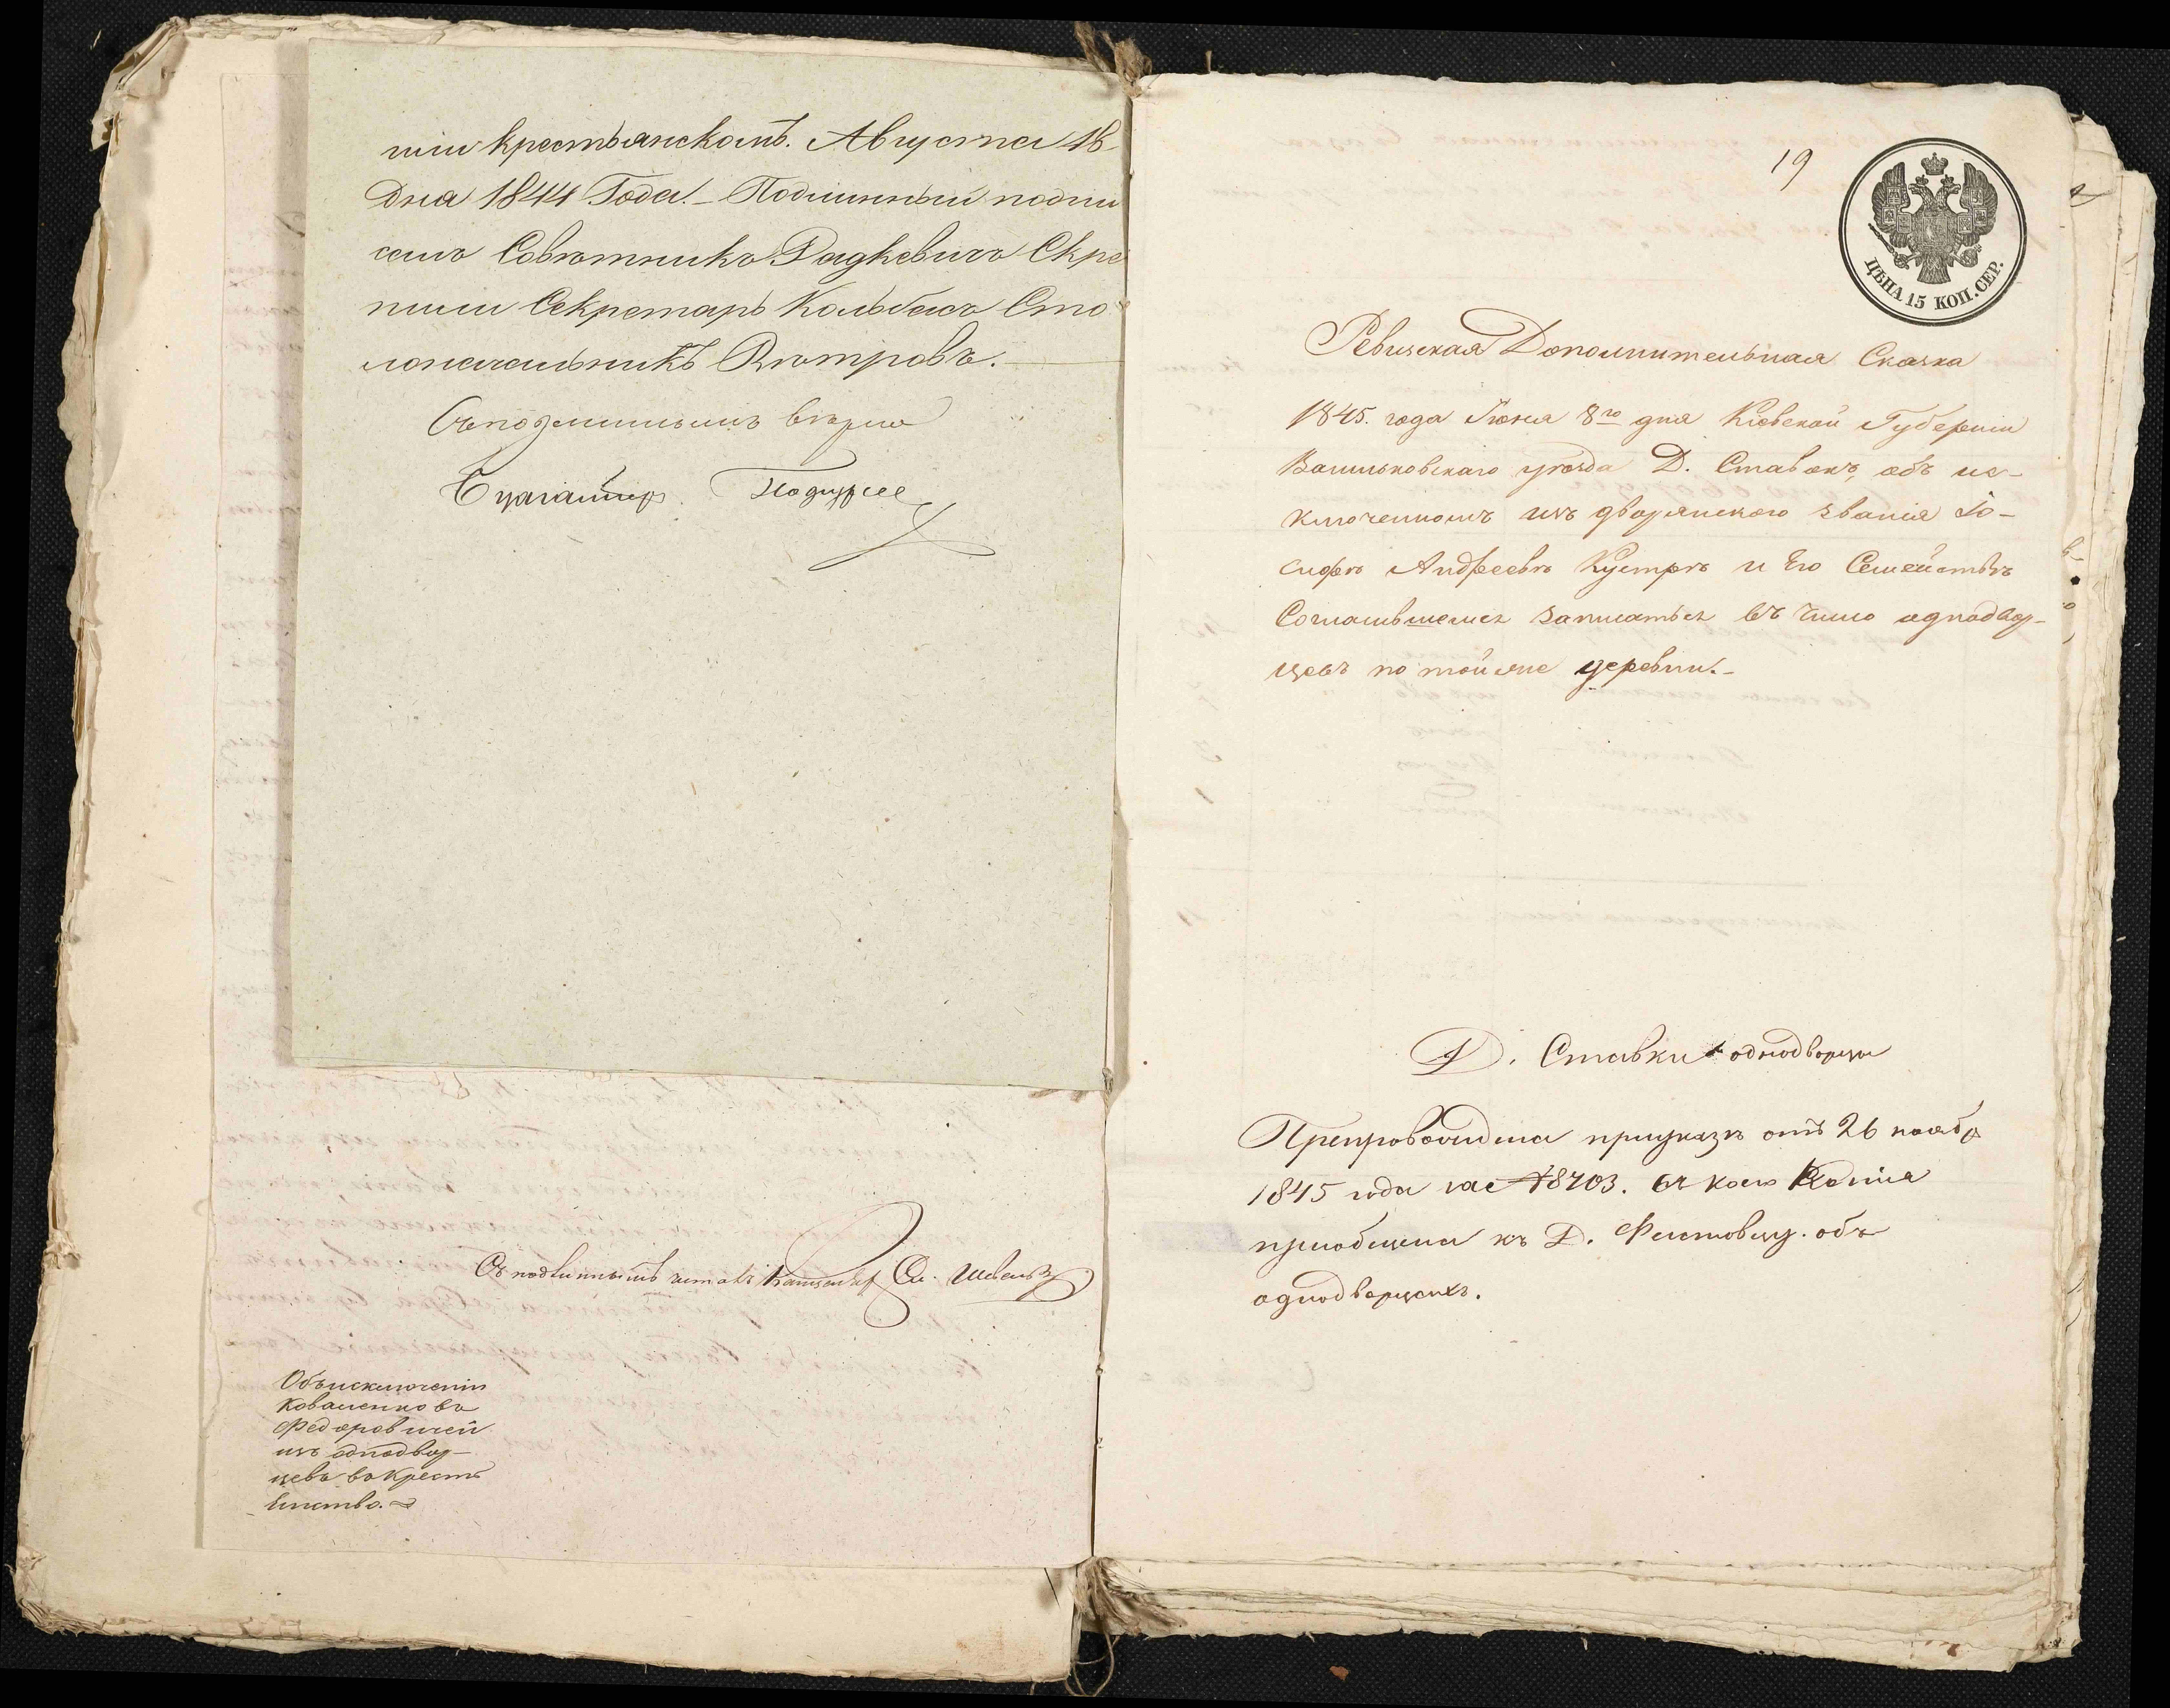 нии крестьянскомъ. Августа 18
дня 1844 Года. – Подлинный подпи
салъ Советникъ Радкевичъ Скре
пили Секретарь Кольбасъ Сто
лоначальникъ Петровъ.
Съ подлиннымъ верно
Съ подлиннымъ читалъ Канцеляр
Объ исключеніи
Коваленковъ
Федоровичей
изъ однодвор-
цевъ въ Кресть
янство.
19
ЦѢНА 15 КОП. СЕР.
Ревизская Дополнительная Сказка
1845. года Іюня 8го дня Кіевской Губерніи
Васильковскаго уезда Д. Ставокъ, объ ис-
ключенномъ изъ дворянскаго званія Іо-
сифе Андрееве Кустре и Его Семействе
Согласившемся записаться въ число однодвор-
цевъ по той же деревни. –
Д. Ставки однодворцы
Препровождена при указе отъ 26 ноября
1845 года за № 8703. съ коего Копія
приобщена къ Д. объ
однодворцахъ.